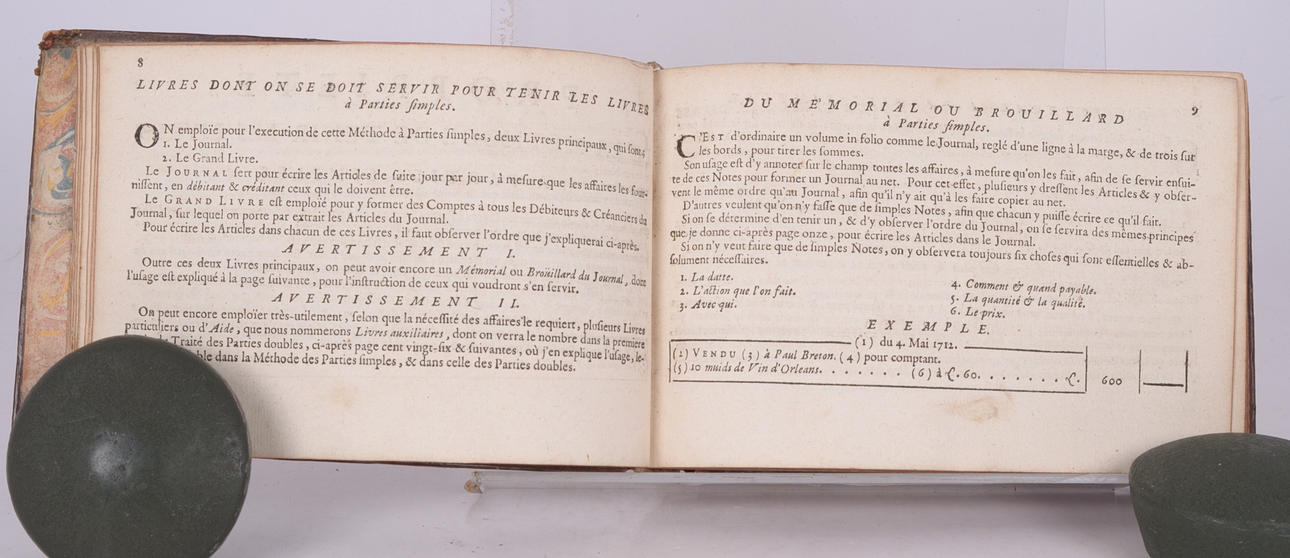 8
LIVRES DONT ON SE DOIT SERVIR POUR TENIR LES LIVRES
à Parties simples.
ON emploïe pour l'execution de cette Méthode à Parties simples, deux Livres principaux, qui sont,
1. Le Journal.
2. Le Grand Livre.
Le JOURNAL sert pour écrire les Articles de suite jour par jour, à mesure que les affaires les four-
nissent, en débitant & créditant ceux qui le doivent être.
Le GRAND LIVRE est emploïé pour y former des Comptes à tous les Débiteurs & Créanciers du
Journal, sur lequel on porte par extrait les Articles du Journal.
Pour écrire les Articles dans chacun de ces Livres, il faut observer l'ordre que j'expliquerai ci-après.
AVERTISSEMENT I.
Outre ces deux Livres principaux, on peut avoir encore un Mémorial ou Broüillard du Journal, dont
l'usage est expliqué à la page suivante, pour l'instruction de ceux qui voudront s'en servir.
AVERTISSEMENT II.
On peut encore emploïer très-utilement, selon que la nécessité des affaires le requiert, plusieurs Livres
particuliers ou d'Aide, que nous nommerons Livres auxiliaires, dont on verra le nombre dans la premiere
Traité des Parties doubles, ci-après page cent vingt-six & suivantes, où j'en explique l'usage, le-
dans la Méthode des Parties simples, & dans celle des Parties doubles.
9
DU MÉMORIAL OU BROUILLARD
à Parties simples.
C'EST d'ordinaire un volume in folio comme le Journal, reglé d'une ligne à la marge, & de trois sur
les bords, pour tirer les sommes.
Son usage est d'y annoter sur le champ toutes les affaires, à mesure qu'on les fait, afin de se servir ensui-
te de ces Notes pour former un Journal au net. Pour cet effet, plusieurs y dressent les Articles & y obser-
vent le même ordre qu'au Journal, afin qu'il n'y ait qu'à les faire copier au net.
D'autres veulent qu'on n'y fasse que de simples Notes, afin que chacun y puisse écrire ce qu'il fait.
Si on se détermine d'en tenir un, & d'y observer l'ordre du Journal, on se servira des mêmes principes
que je donne ci-après page onze, pour écrire les Articles dans le Journal.
Si on n'y veut faire que de simples Notes, on y observera toujours six choses qui sont essentielles & ab-
solument nécessaires.
1. La datte.
2. L'action que l'on fait.
3. Avec qui.
4. Comment & quand payable.
5. La quantité & la qualité.
6. Le prix.
EXEMPLE.
(1) du 4. Mai 1712.
(2) VENDU (3) à Paul Breton. (4) pour comptant.
(5) 10 muids de Vin d'Orleans. . . . . . . (6) à £. 60. . . . . . . £. 600